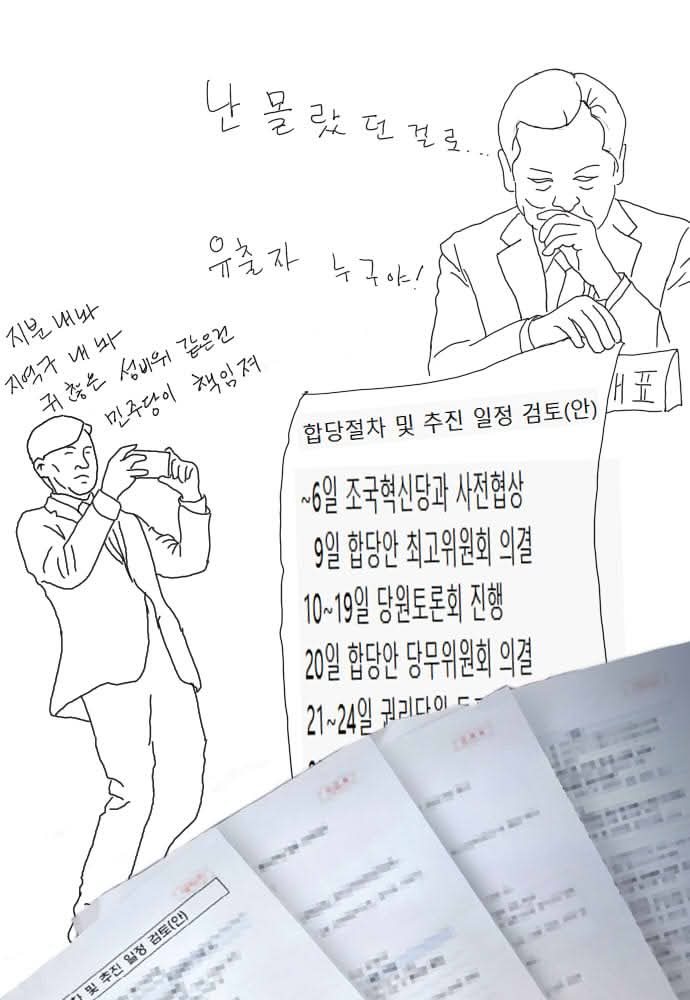 난 몰랐던걸로...
유출자 누구야!
지분 내놔
지역구 내놔
귀찮은 성비위 같은건
민주당이 책임져
대표
합당절차 및 추진 일정 검토(안)
~6일 조국혁신당과 사전협상
9일 합당안 최고위원회 의결
10~19일 당원토론회 진행
20일 합당안 당무위원회 의결
21~24일 권리당원
및 추진 일정 검토(안)